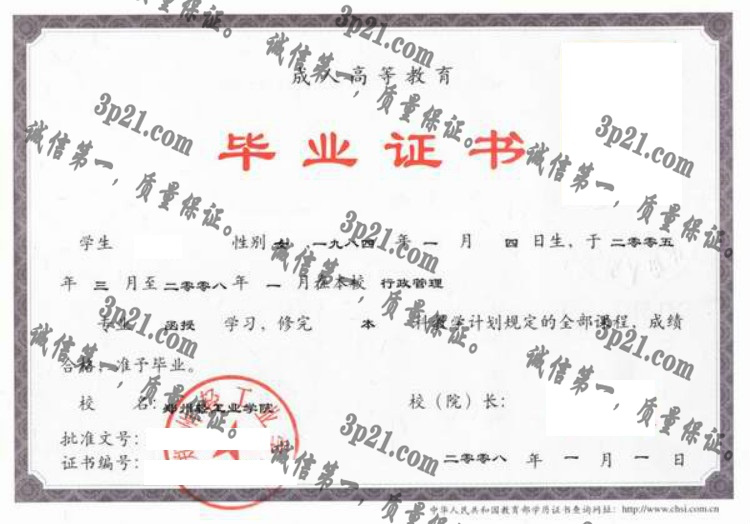 成人高等教育
毕业证书
学生 性别 女 一九八四 年 一 月 四 日生，于 二零零五
年 三 月至 二零零八 年 一 月在本校 行政管理
专业 函授 学习，修完 本 科教学计划规定的全部课程，成绩
合格，准予毕业。
校 名：郑州轻工业学院 校（院）长：
批准文号：
证书编号： 二零零八 年 一 月 一 日
中华人民共和国教育部学历证书查询网址：http://www.chsi.com.cn
3p21.com
诚信第一，质量保证。
3p21.com
诚信第一，质量保证。
3p21.com
诚信第一，质量保证。
3p21.com
诚信第一，质量保证。
3p21.com
诚信第一，质量保证。
3p21.com
诚信第一，质量保证。
3p21.com
诚信第一，质量保证。